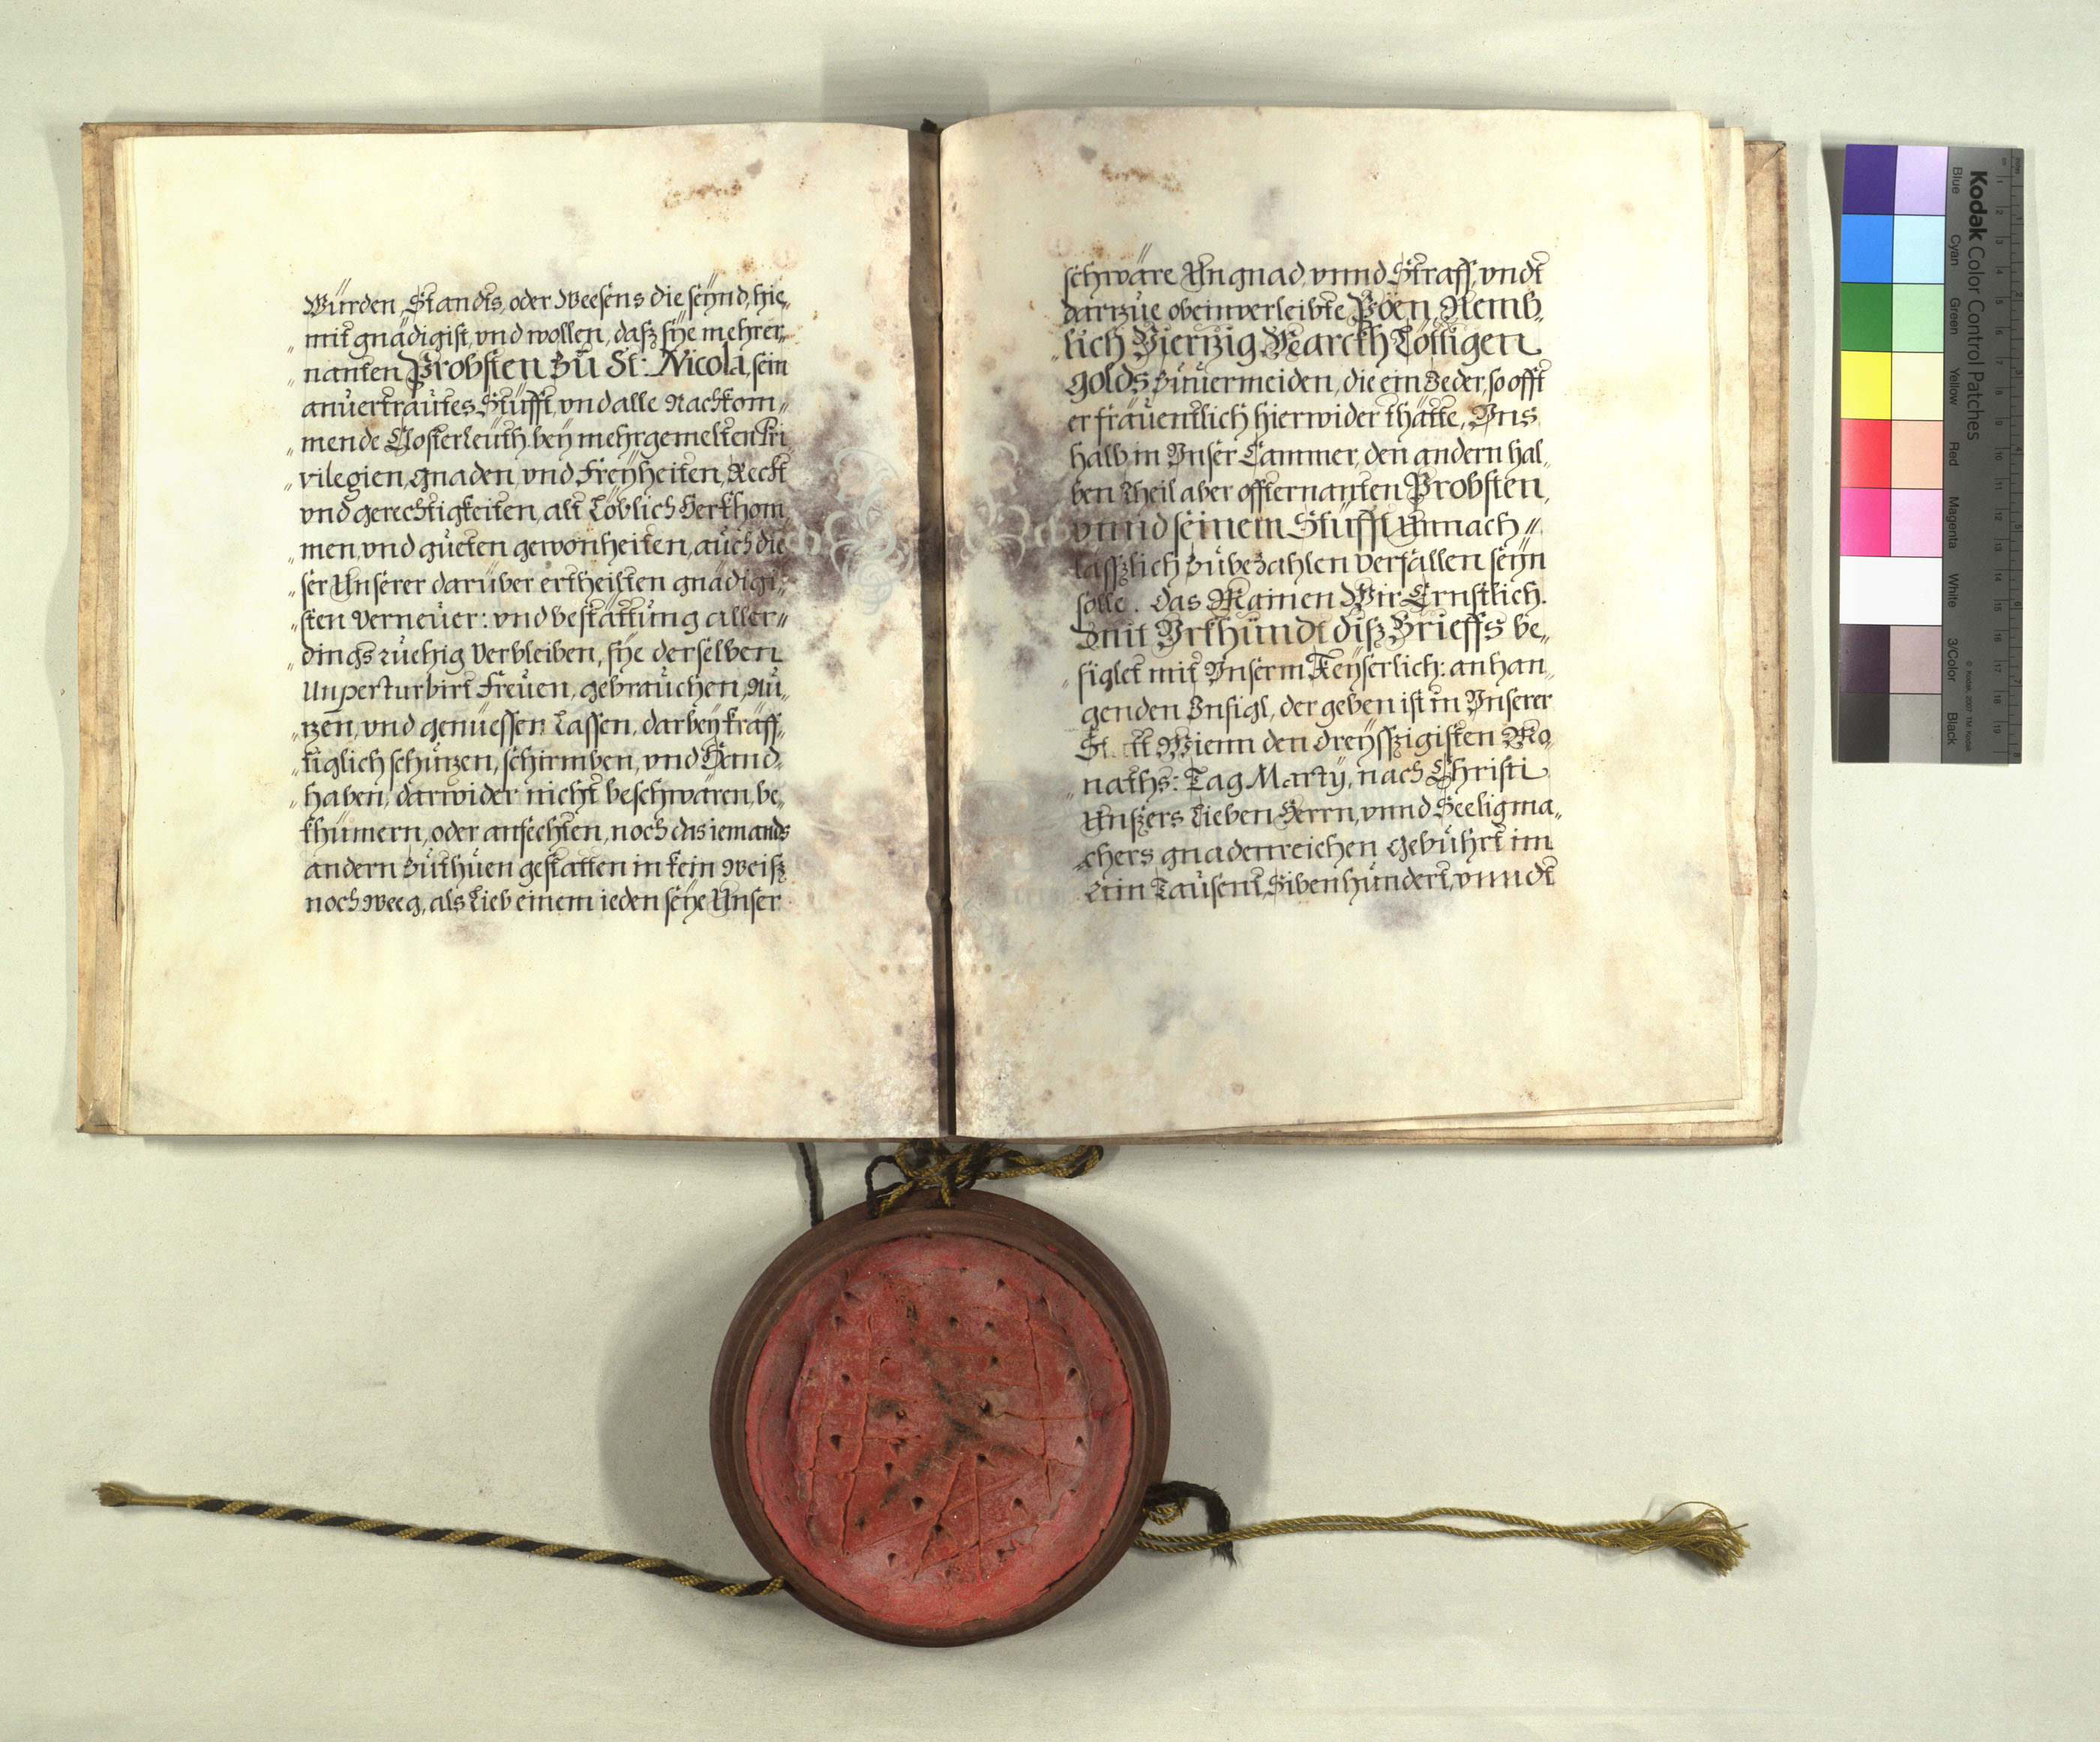 Würden, Standts, oder Weesens die seÿnd, hie„
„mit gnädigist, vnd wollen, dasz sÿe mehrer„
„nanten Probsten Zü St: Nicola, sein
anüertraütes Stüfft, vnd alle Nachkom„
„mende Closterleüth, beÿ mehrgemelten Pri
„vilegien, gnaden, vnd Freÿheiten, Recht
vnd gerechtigkeiten, alt Löblich Herkhom
„men, vnd güeten gewonheiten, aüch die
„ser Unserer darüber ertheilten gnädigi„
„sten Verneüer: vnd bestättüng aller„
„dings rüehig Verbleiben, sÿe derselben
Unperturbirt Freüen, gebraüchen, Nü„
„tzen, vnd genüessen Lassen, darbeÿ kräff„
„tiglich schützen, schirmben, vnd Hand
„haben, darwider nicht beschwären, be„
khümern, oder anfechten, noch das iemands
andern Züthüen gestatten in kein Weisz
noch Weeg, als Lieb einem ieden seÿe Unser
schwäre Ungnad, vnnd Straff, vndt
darzüe obeinverleibte Pöen, Nemb„
„lich Vierzig Marckh Löttigen
golds Züüermeiden, die ein Jeder, so offt
er fräüentlich hierwider thätte, Vns
halb in Vnser Cammer, den andern hal„
ben Theil aber offternanten Probsten,
vnnd seinem Stüfft Unnach„
lässzlich Zübezahlen verfallen seÿn
solle. Das Mainen Wir Ernstlich.
Mit Vrkhündt disz Brieffs be„
„siglet mit Vnserm Keÿserlich: anhan„
genden Insigl, der geben ist in Vnserer
Statt Wienn den dreÿsszigisten Mo„
„naths: Tag Martÿ, nach Christi
Unszers Lieben Herrn, vnnd Seeligma„
chers gnadenreichen Gebührt im
Ein Taüsent, Sibenhündert, vnndt
Kodak Color Control Patches
Blue Cyan Green Yellow Red Magenta White 3/Color Black
© Kodak, 2007 TM: Kodak